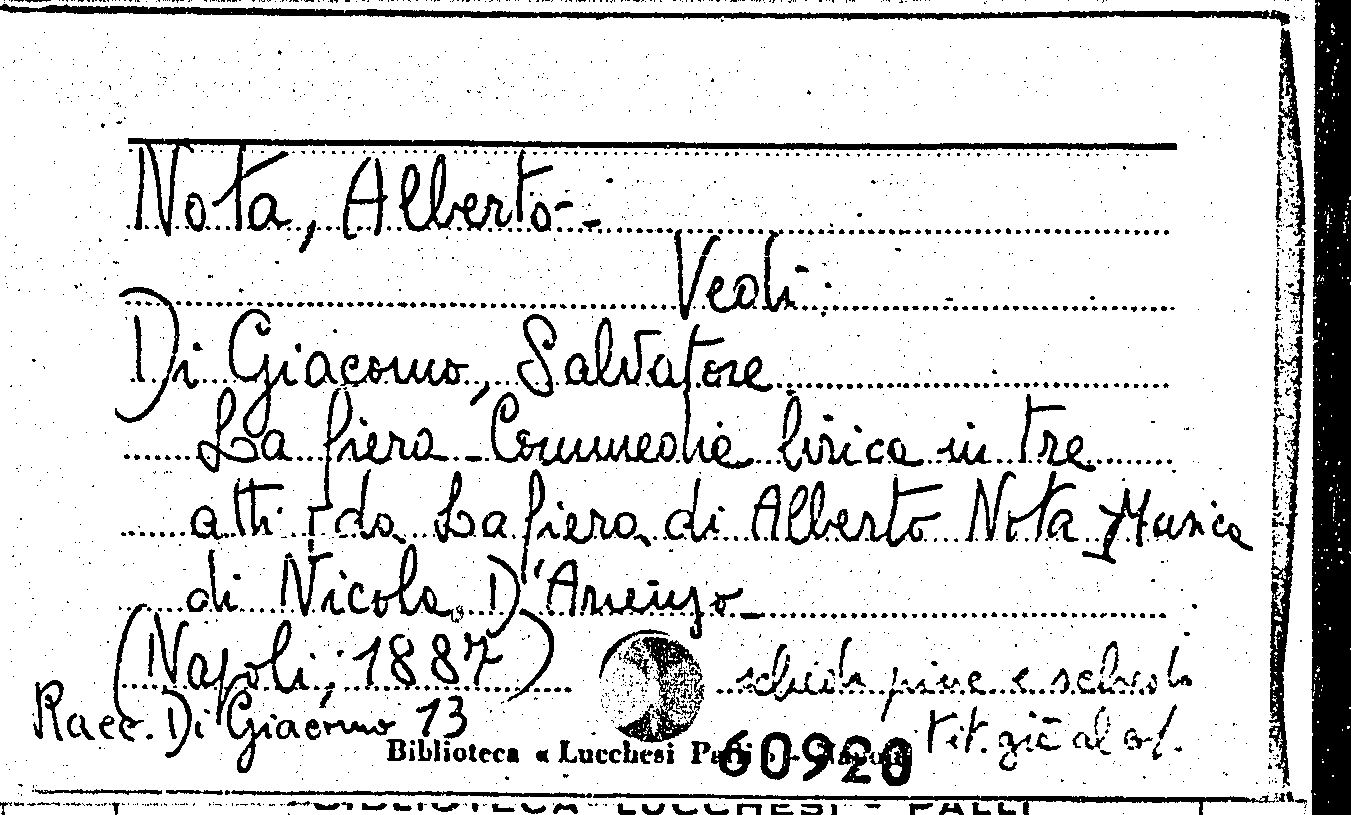 Nota, Alberto -
Vedi:
Di Giacomo, Salvatore
La fiera - Commedia lirica in tre
atti da La fiera di Alberto Nota - Musica
di Nicola D'Arienzo -
(Napoli, 1887)
scheda princ. e scheda
Racc. Di Giacomo 13
tit. già al
Biblioteca « Lucchesi Palli » - Napoli
60920
BIBLIOTECA LUCCHESI - PALLI